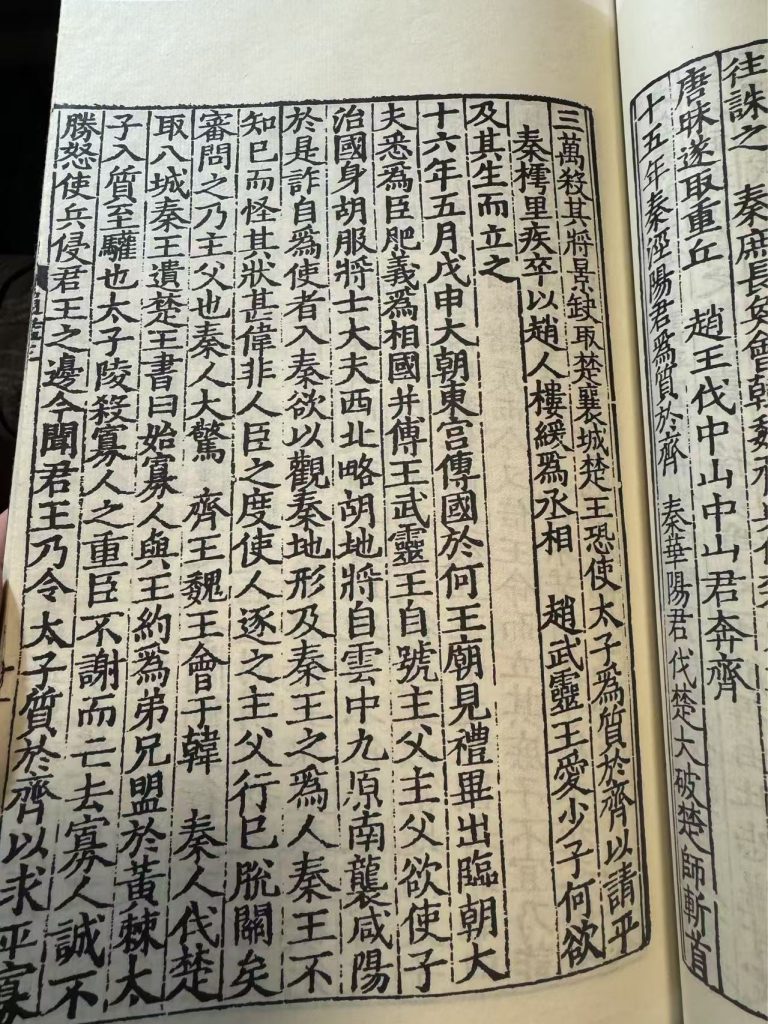 往誅之 秦庶長奐會韓魏齊兵伐
唐昧遂取重丘 趙王伐中山中山君奔齊
十五年秦涇陽君爲質於齊 秦華陽君伐楚大破楚師斬首
三萬殺其將景缺取楚襄城楚王恐使太子爲質於齊以請平
秦樗里疾卒以趙人樓緩爲丞相 趙武靈王愛少子何欲
及其生而立之
十六年五月戊申大朝東宮傳國於何王廟見禮畢出臨朝大
夫悉爲臣肥義爲相國并傅王武靈王自號主父主父欲使子
治國身胡服將士大夫西北略胡地將自雲中九原南襲咸陽
於是詐自爲使者入秦欲以觀秦地形及秦王之爲人秦王不
知已而怪其狀甚偉非人臣之度使人逐之主父行已脫關矣
審問之乃主父也秦人大驚 齊王魏王會于韓 秦人伐楚
取八城秦王遺楚王書曰始寡人與王約爲弟兄盟於黃棘太
子入質至驩也太子陵殺寡人之重臣不謝而亡去寡人誠不
勝怒使兵侵君王之邊今聞君王乃令太子質於齊以求平寡